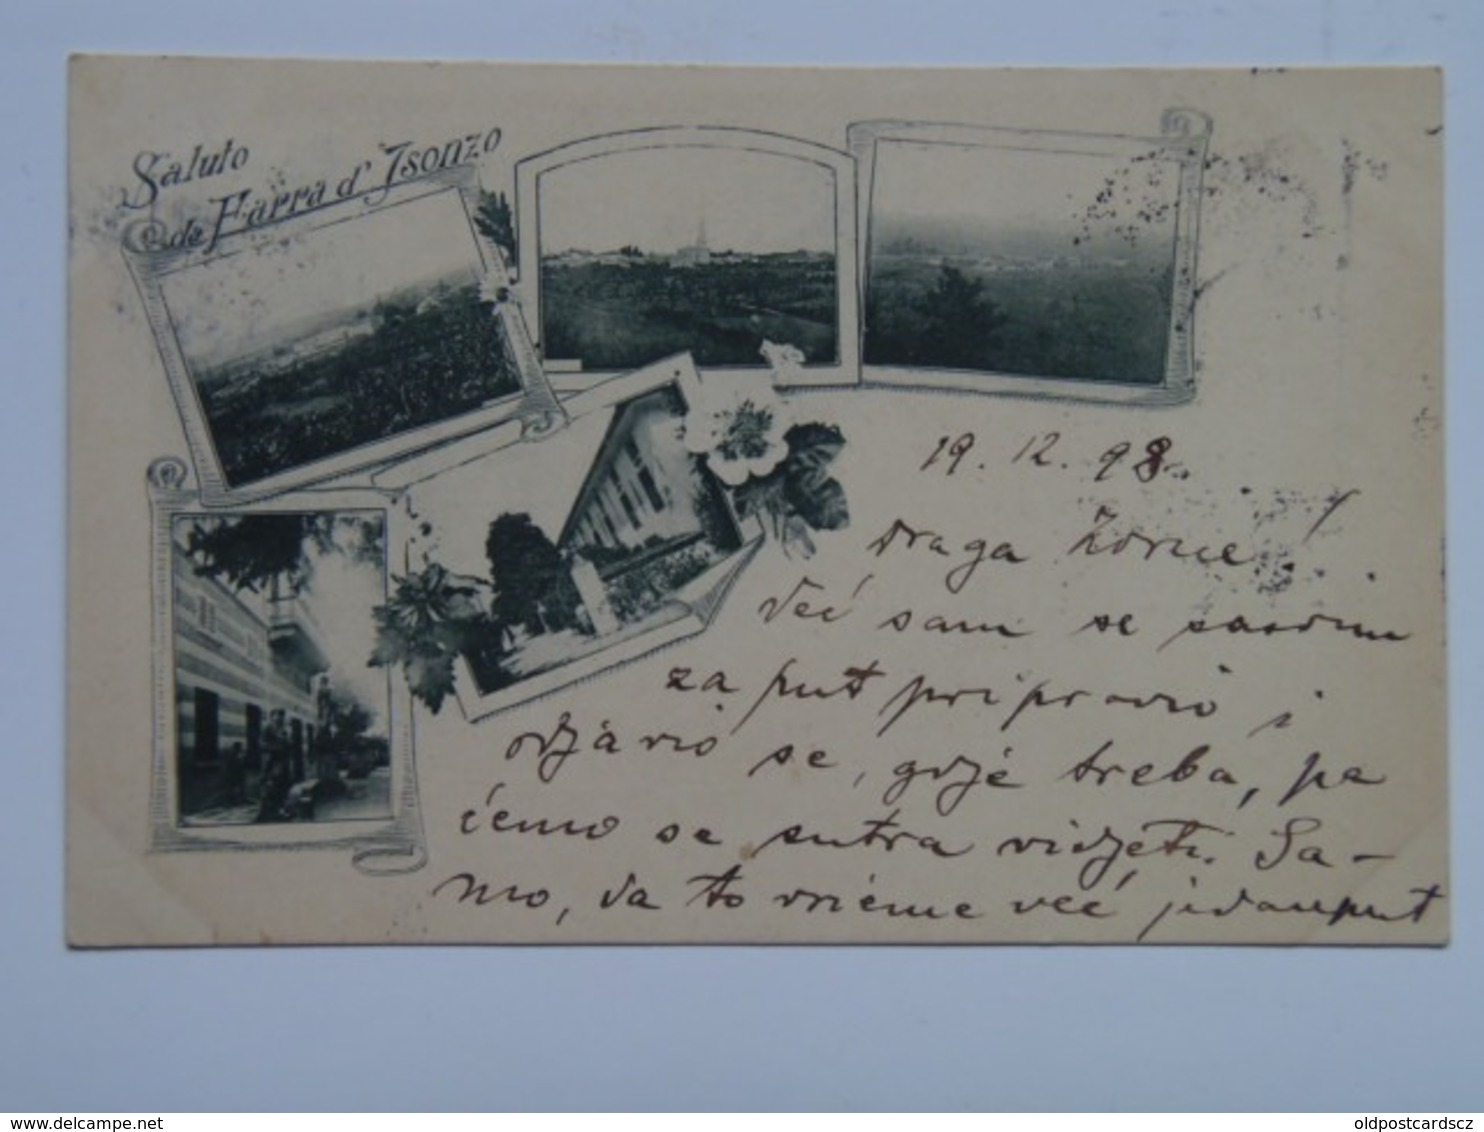 Saluto
da Farra d'Isonzo
19. 12. 98.
Draga Zorue!
Već sam se sasvim
za put pripravio i
odjavio se, gdje treba, pa
ćemo se sutra vidjeti. Sa-
mo, da to vrieme već jedanput
delcampe.net
oldpostcardscz